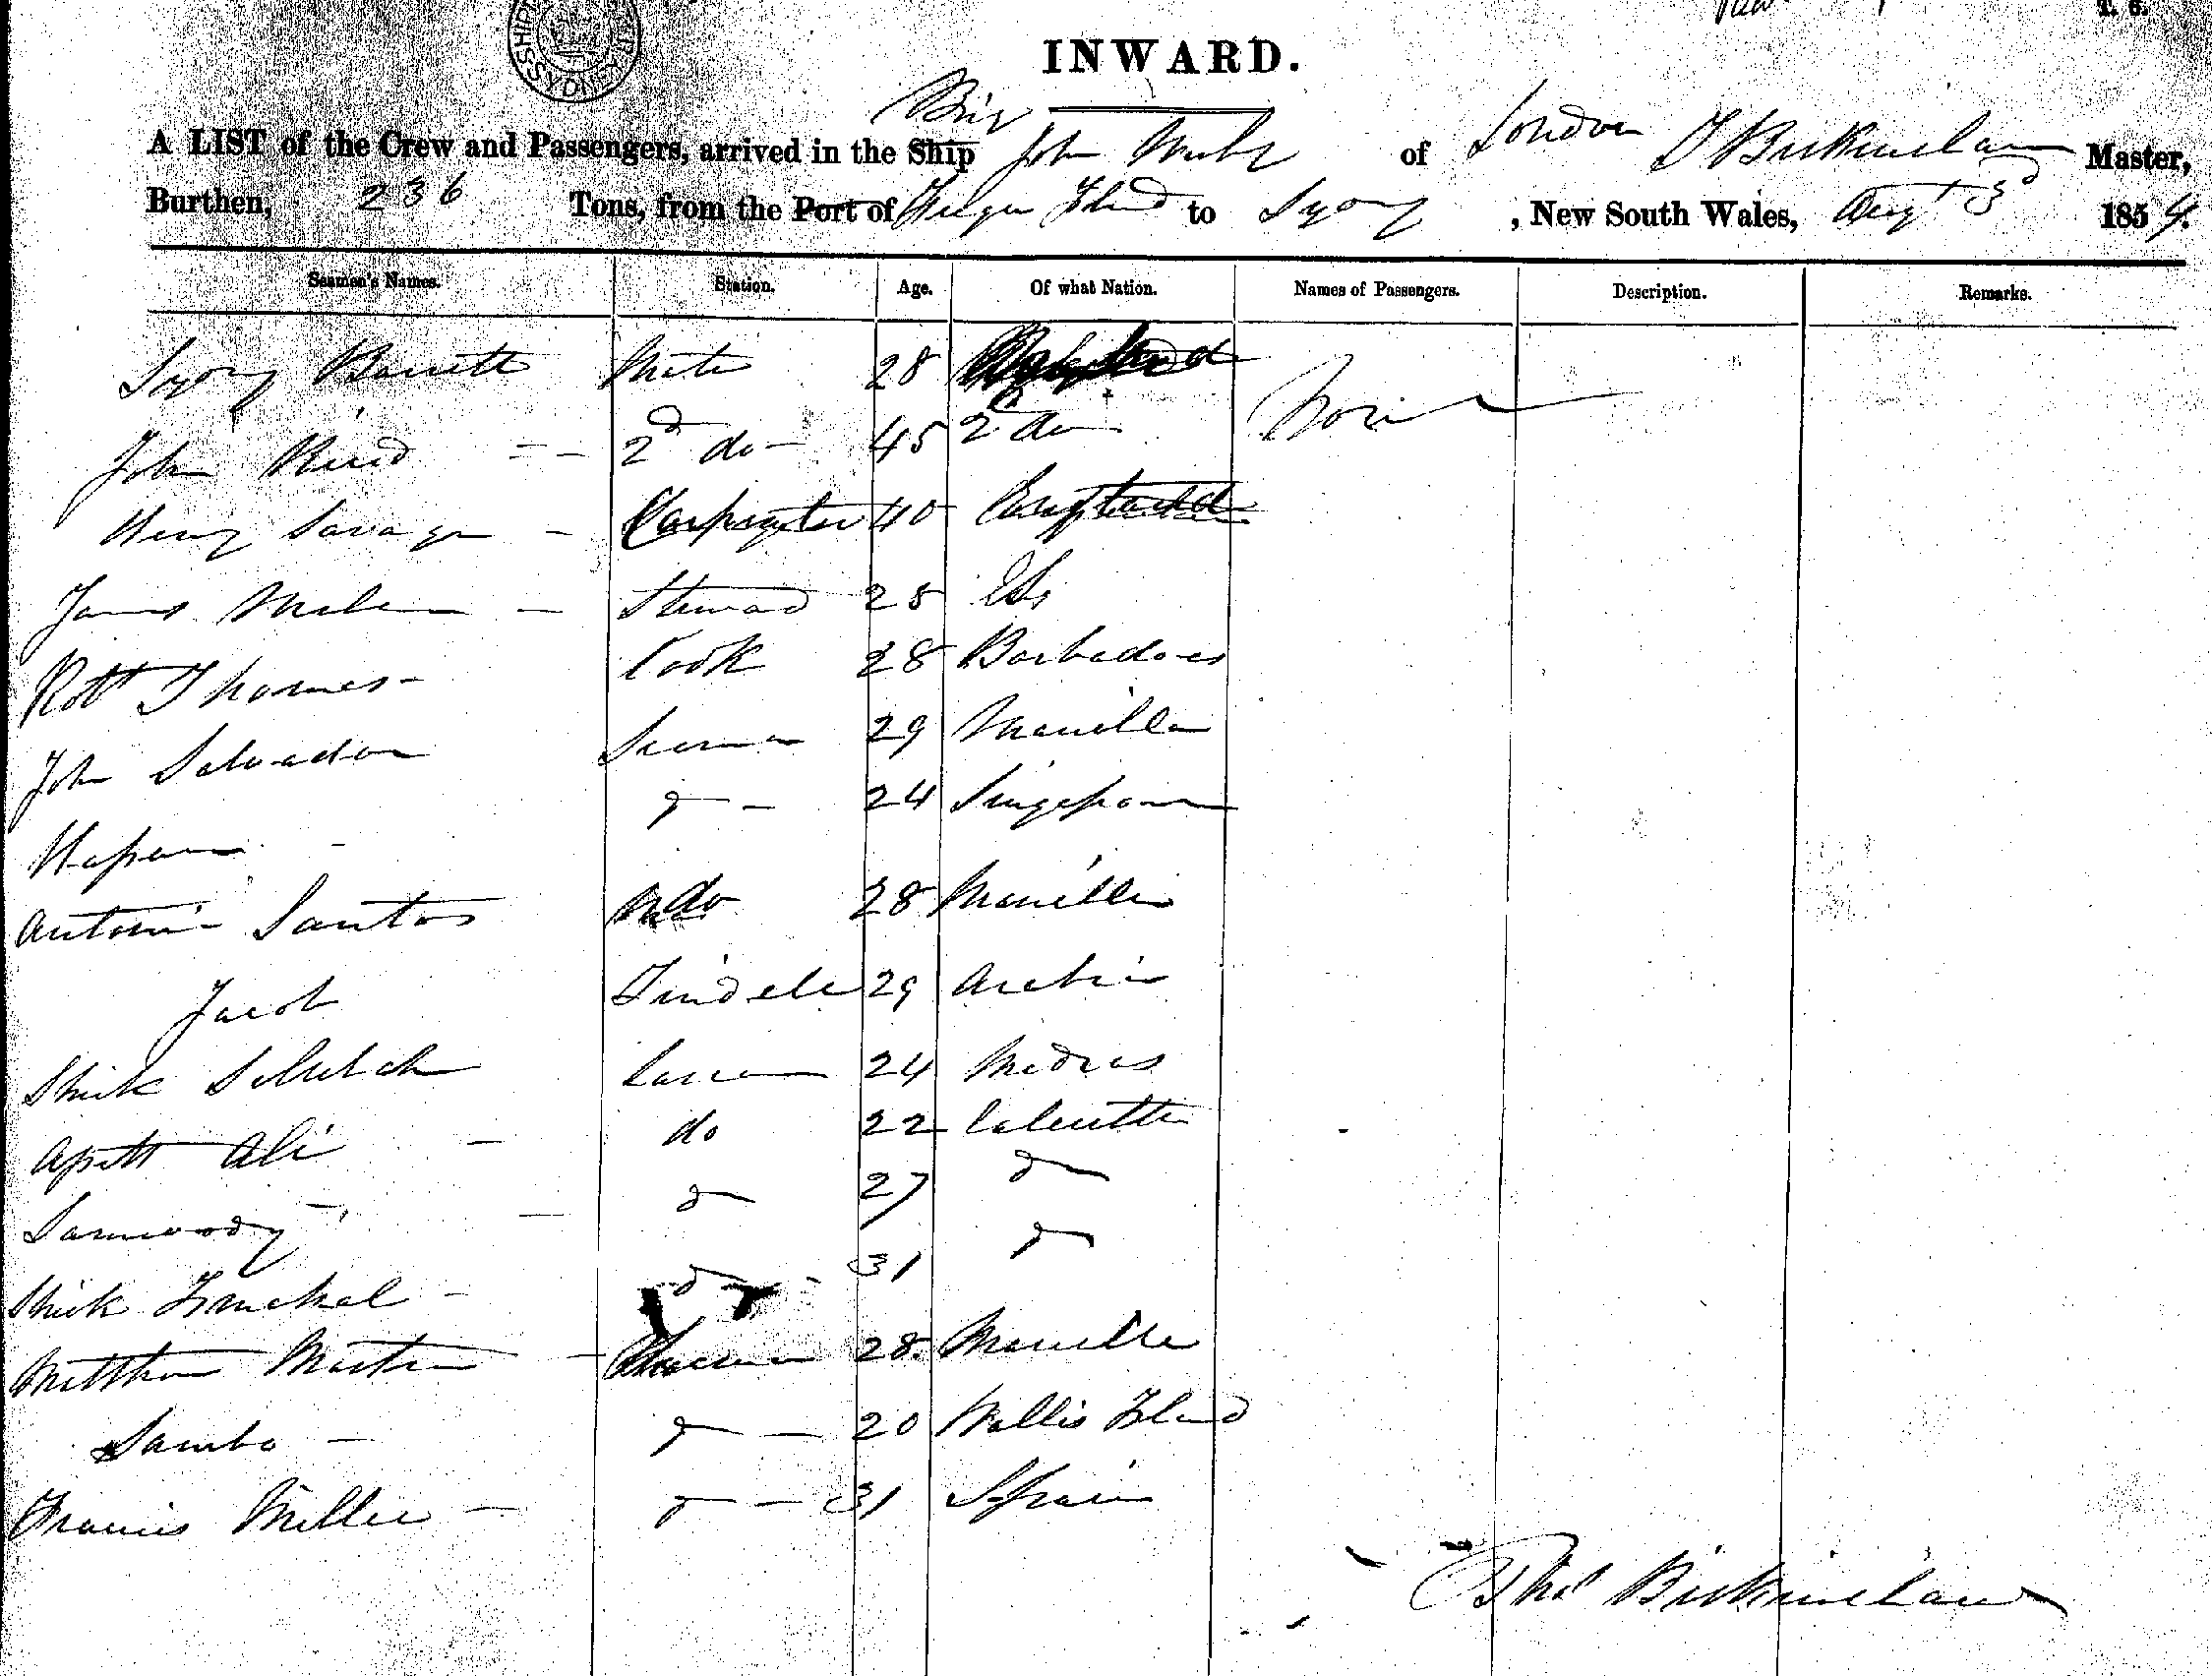 T. 6.
SYDNEY
INWARD.
Brig
A LIST of the Crew and Passengers, arrived in the Ship John of London T Birkinshaw Master,
Burthen, 236 Tons, from the Port of Island to Sydney, New South Wales, Augt 3d 1854.
Seamen's Names. Station. Age. Of what Nation. Names of Passengers. Description. Remarks.
Barrett Mate 28
John Reid -- 2d do- 45 2 do None
Henry Savage - Carpenter 40 England
James - Steward 25 do
Robt Thomas- Cook 28 Barbadoes
John Salvador Seaman 29 Manilla
- do - 24 Singapore
Antonio Santos do 28 Manilla
Jacob Tindele 29 Arabia
Shik Lascar 24 Madras
Ali - do 22 Calcutta
- do 27 do
Shick - do - 31 do
Matthew Martin - Seaman 28. Manilla
Sambo - do - 20 Wallis Island
Francis Miller - do - 31 Spain
Thos Birkinshaw